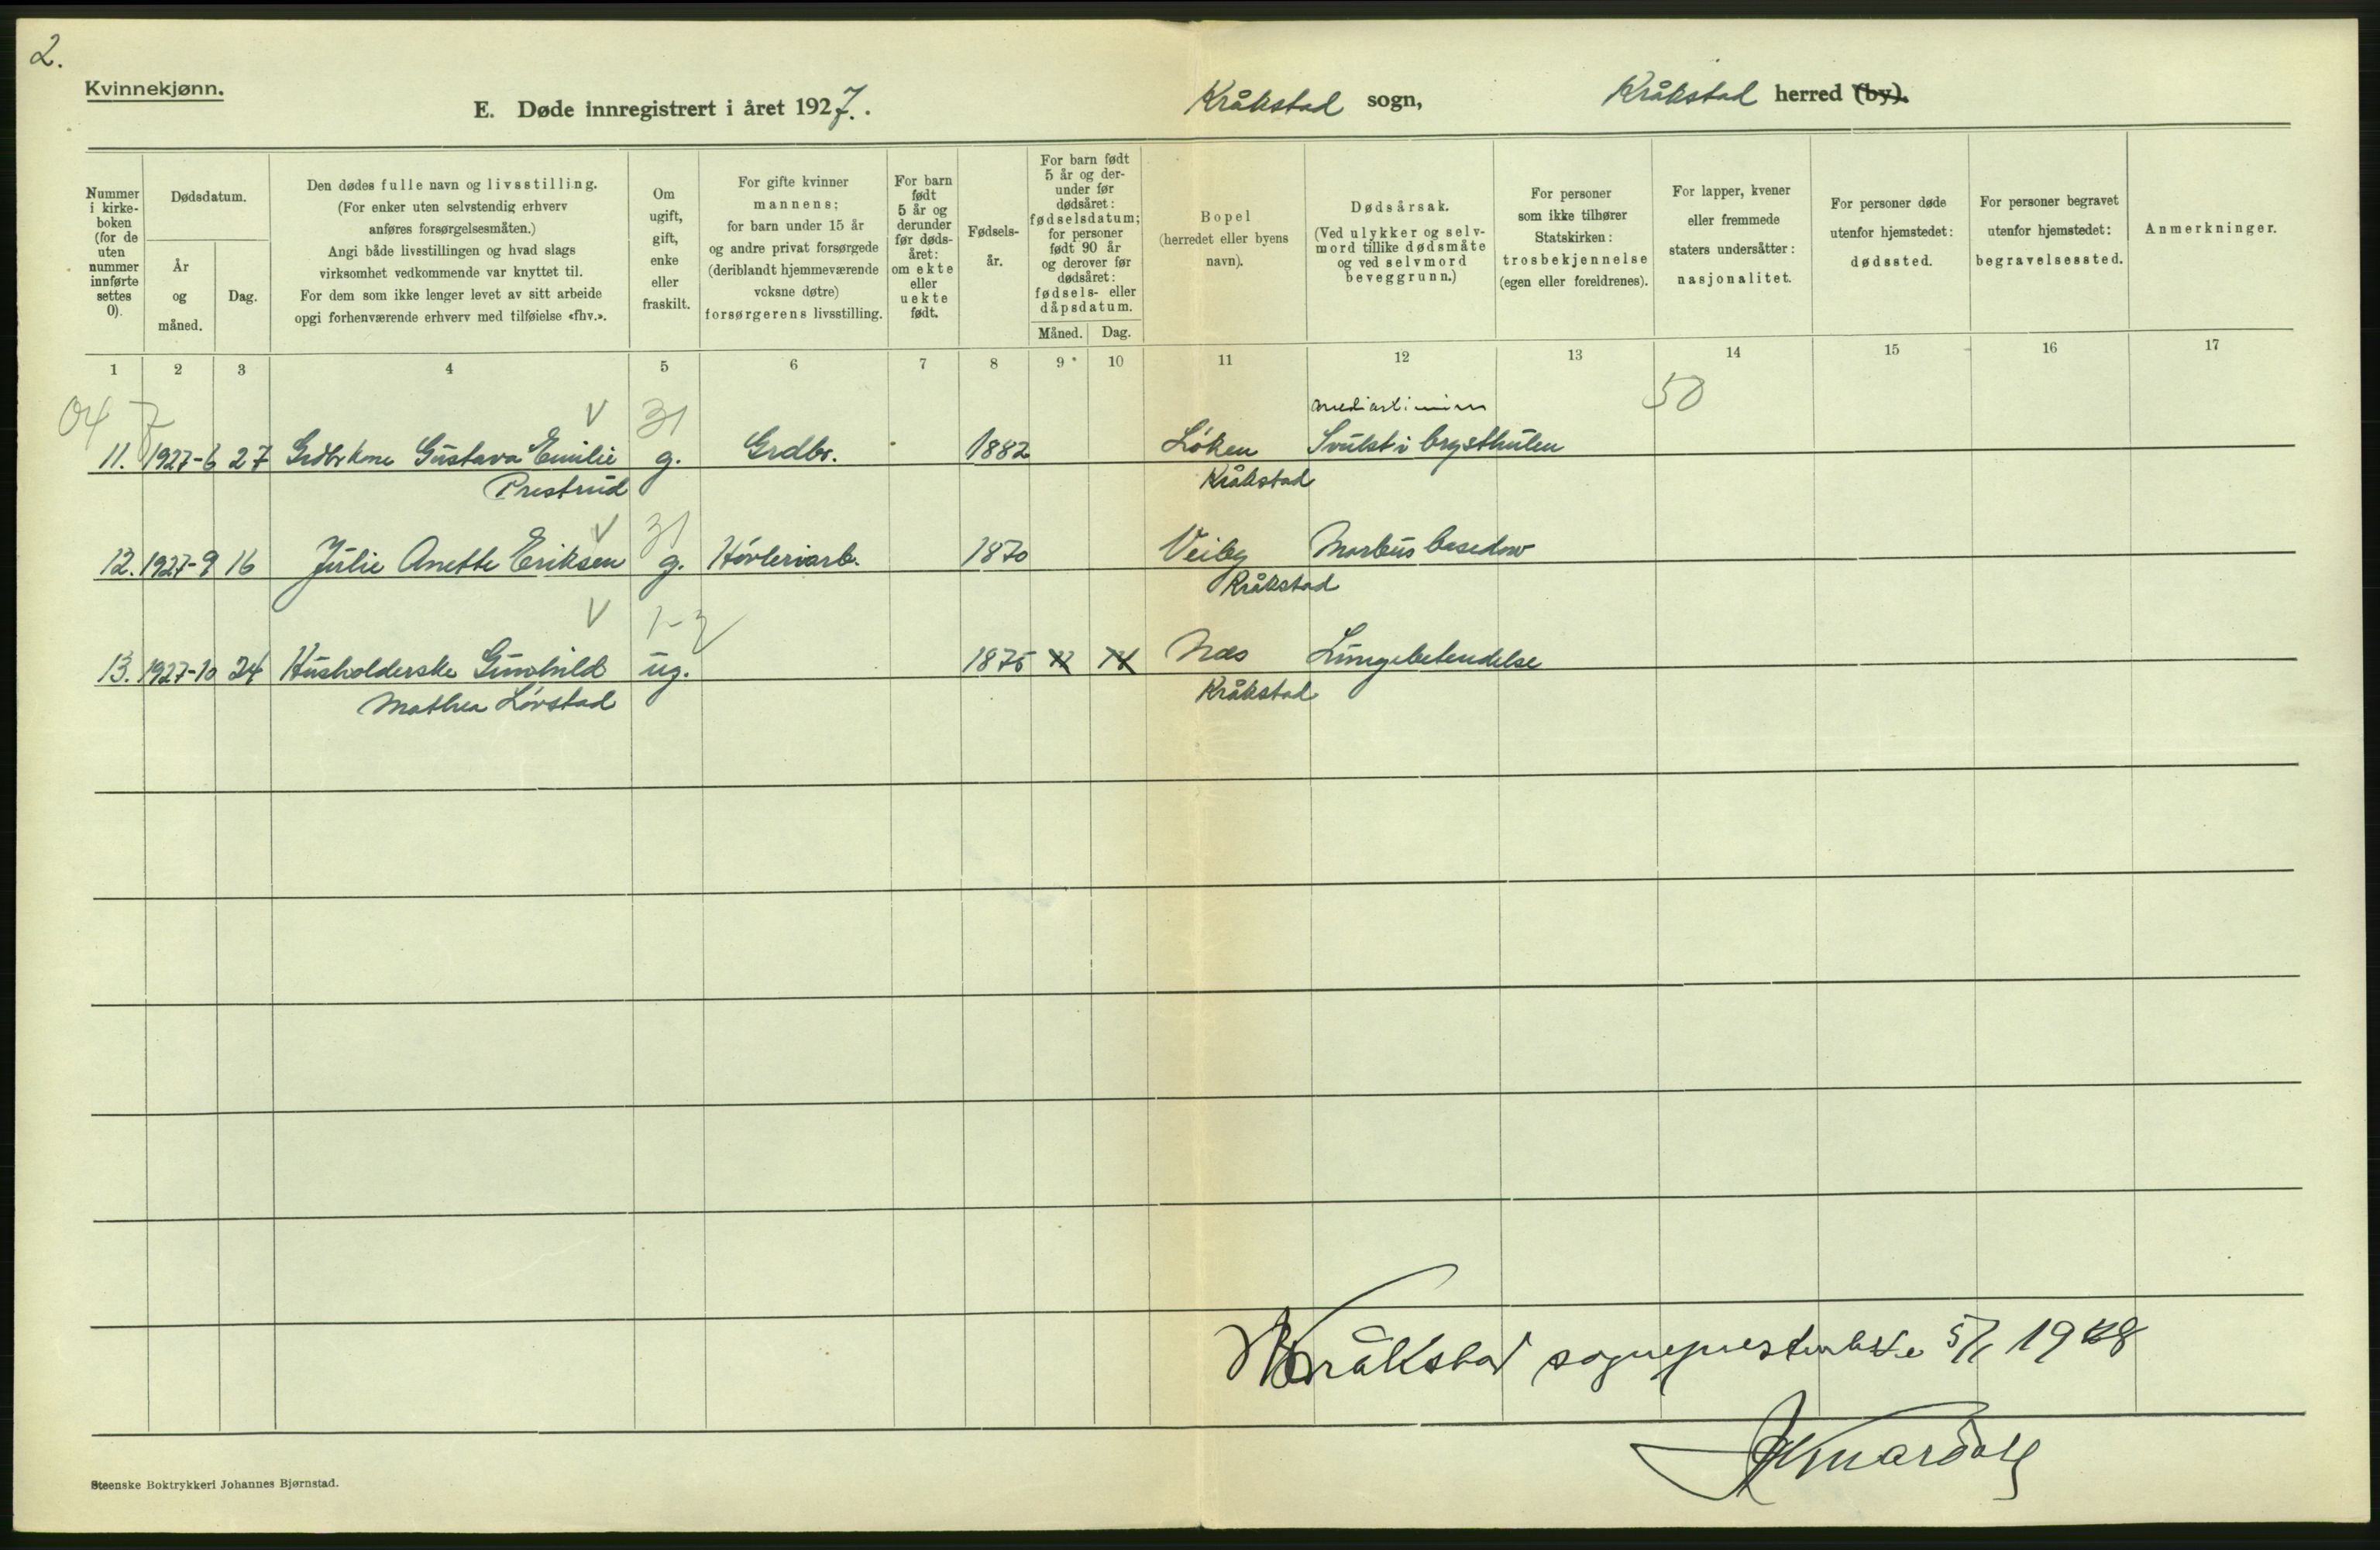 2.
Kvinnekjønn.
E. Døde innregistrert i året 1927.
Kråkstad sogn,
Kråkstad herred (by).
Nummer i kirke-boken (for de uten nummer innførte settes 0).
Dødsdatum.
År og måned.
Dag.
Den dødes fulle navn og livsstilling.
(For enker uten selvstendig erhverv
anføres forsørgelsesmåten.)
Angi både livsstillingen og hvad slags
virksomhet vedkommende var knyttet til.
For dem som ikke lenger levet av sitt arbeide
opgi forhenværende erhverv med tilføielse «fhv.».
Om
ugift,
gift,
enke
eller
fraskilt.
For gifte kvinner
mannens;
for barn under 15 år
og andre privat forsørgede
(deriblandt hjemmeværende
voksne døtre)
forsørgerens livsstilling.
For barn
født
5 år og
derunder
før døds-
året:
om ekte
eller
uekte
født.
Fødsels-
år.
For barn født
5 år og der-
under før
dødsåret:
fødselsdatum;
for personer
født 90 år
og derover før
dødsåret:
fødsels- eller
dåpsdatum.
Måned.
Dag.
Bopel
(herredet eller byens
navn).
Dødsårsak.
(Ved ulykker og selv-
mord tillike dødsmåte
og ved selvmord
beveggrunn.)
For personer
som ikke tilhører
Statskirken:
trosbekjennelse
(egen eller foreldrenes).
For lapper, kvener
eller fremmede
staters undersåtter:
nasjonalitet.
For personer døde
utenfor hjemstedet:
dødssted.
For personer begravet
utenfor hjemstedet:
begravelsessted.
Anmerkninger.
1 2 3 4 5 6 7 8 9 10 11 12 13 14 15 16 17
04 7 V 31 50
11. 1927-6 27 Grdbr kone Gustava Emilie g. Grdbr. 1882 Løken Svulst i brysthulen
Prestrud Kråkstad
V 31
12. 1927-9 16 Julie Anette Eriksen g. Høvleriarb. 1870 Veiby Morbus basedow
Kråkstad
V 1-2
13. 1927-10 24 Husholderske Gunhild ug. 1875 Nes Lungebetendelse
Mathea Løvstad Kråkstad
Kråkstad sogneprestembede 5/1 1928
Steenske Boktrykkeri Johannes Bjørnstad.